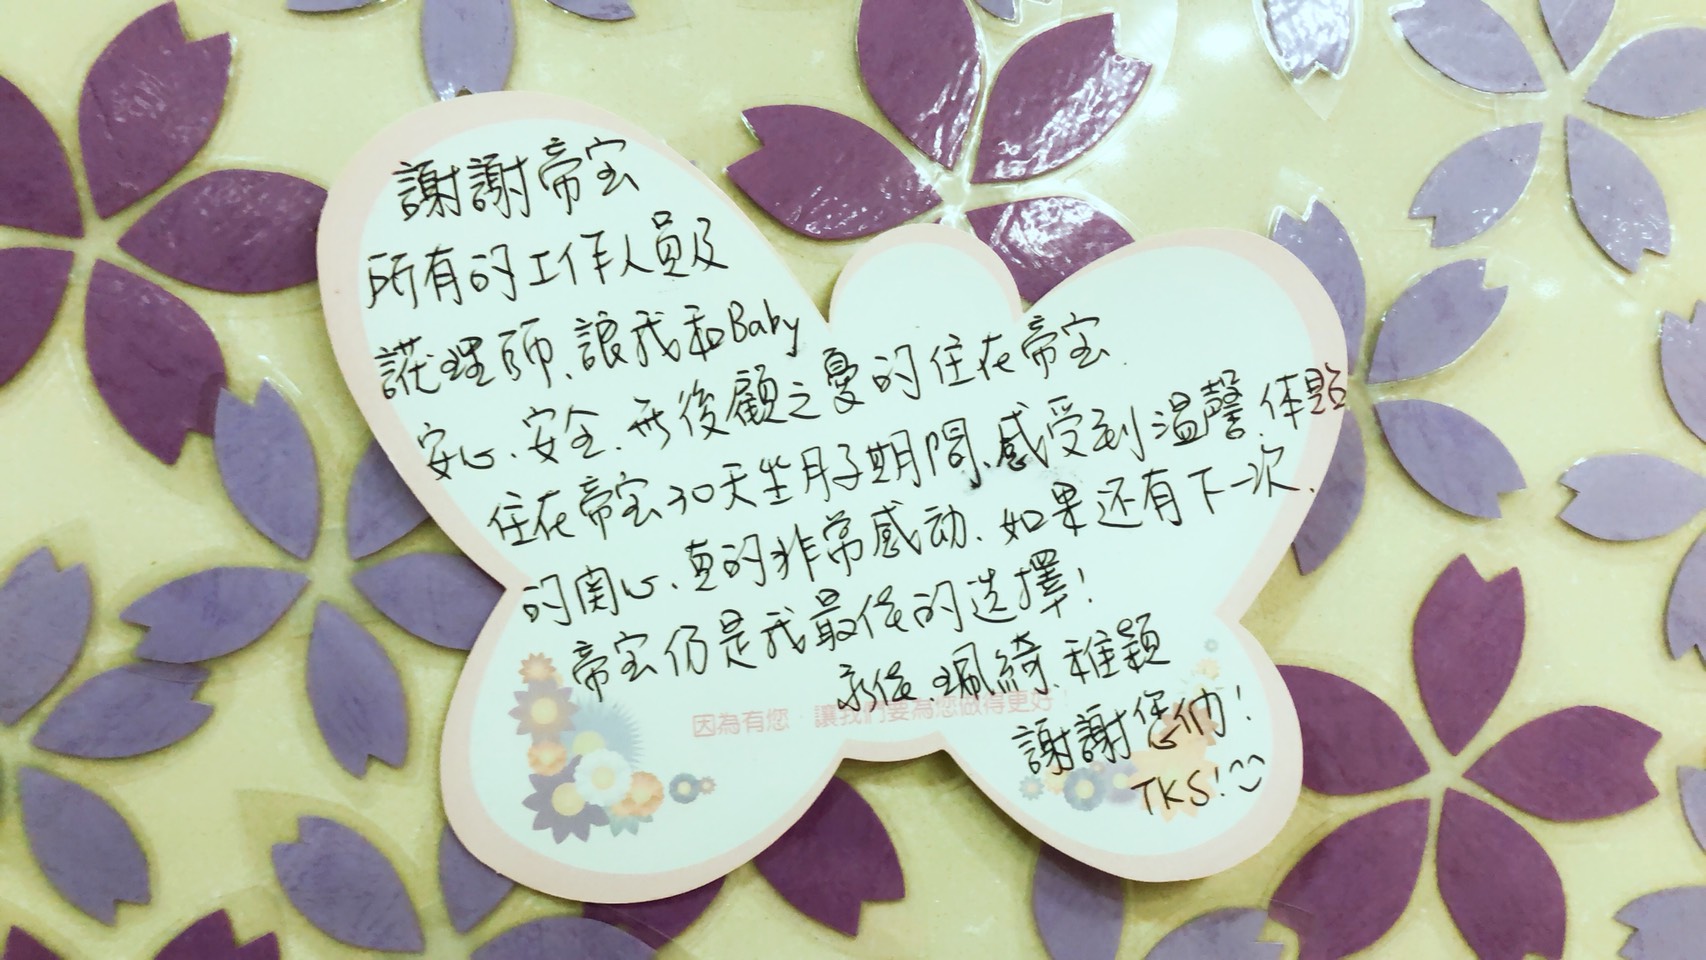 謝謝帝宝
所有的工作人員及
護理師、讓我和Baby
安心、安全、無後顧之憂的住在帝宝.
住在帝宝30天坐月子期間、感受到溫馨、体貼
的関心、真的非常感动、如果还有下一次、
帝宝仍是我最後的选擇!
珮綺、雅穎
因為有您，讓我們要為您做得更好!
謝謝您们!
TKS!